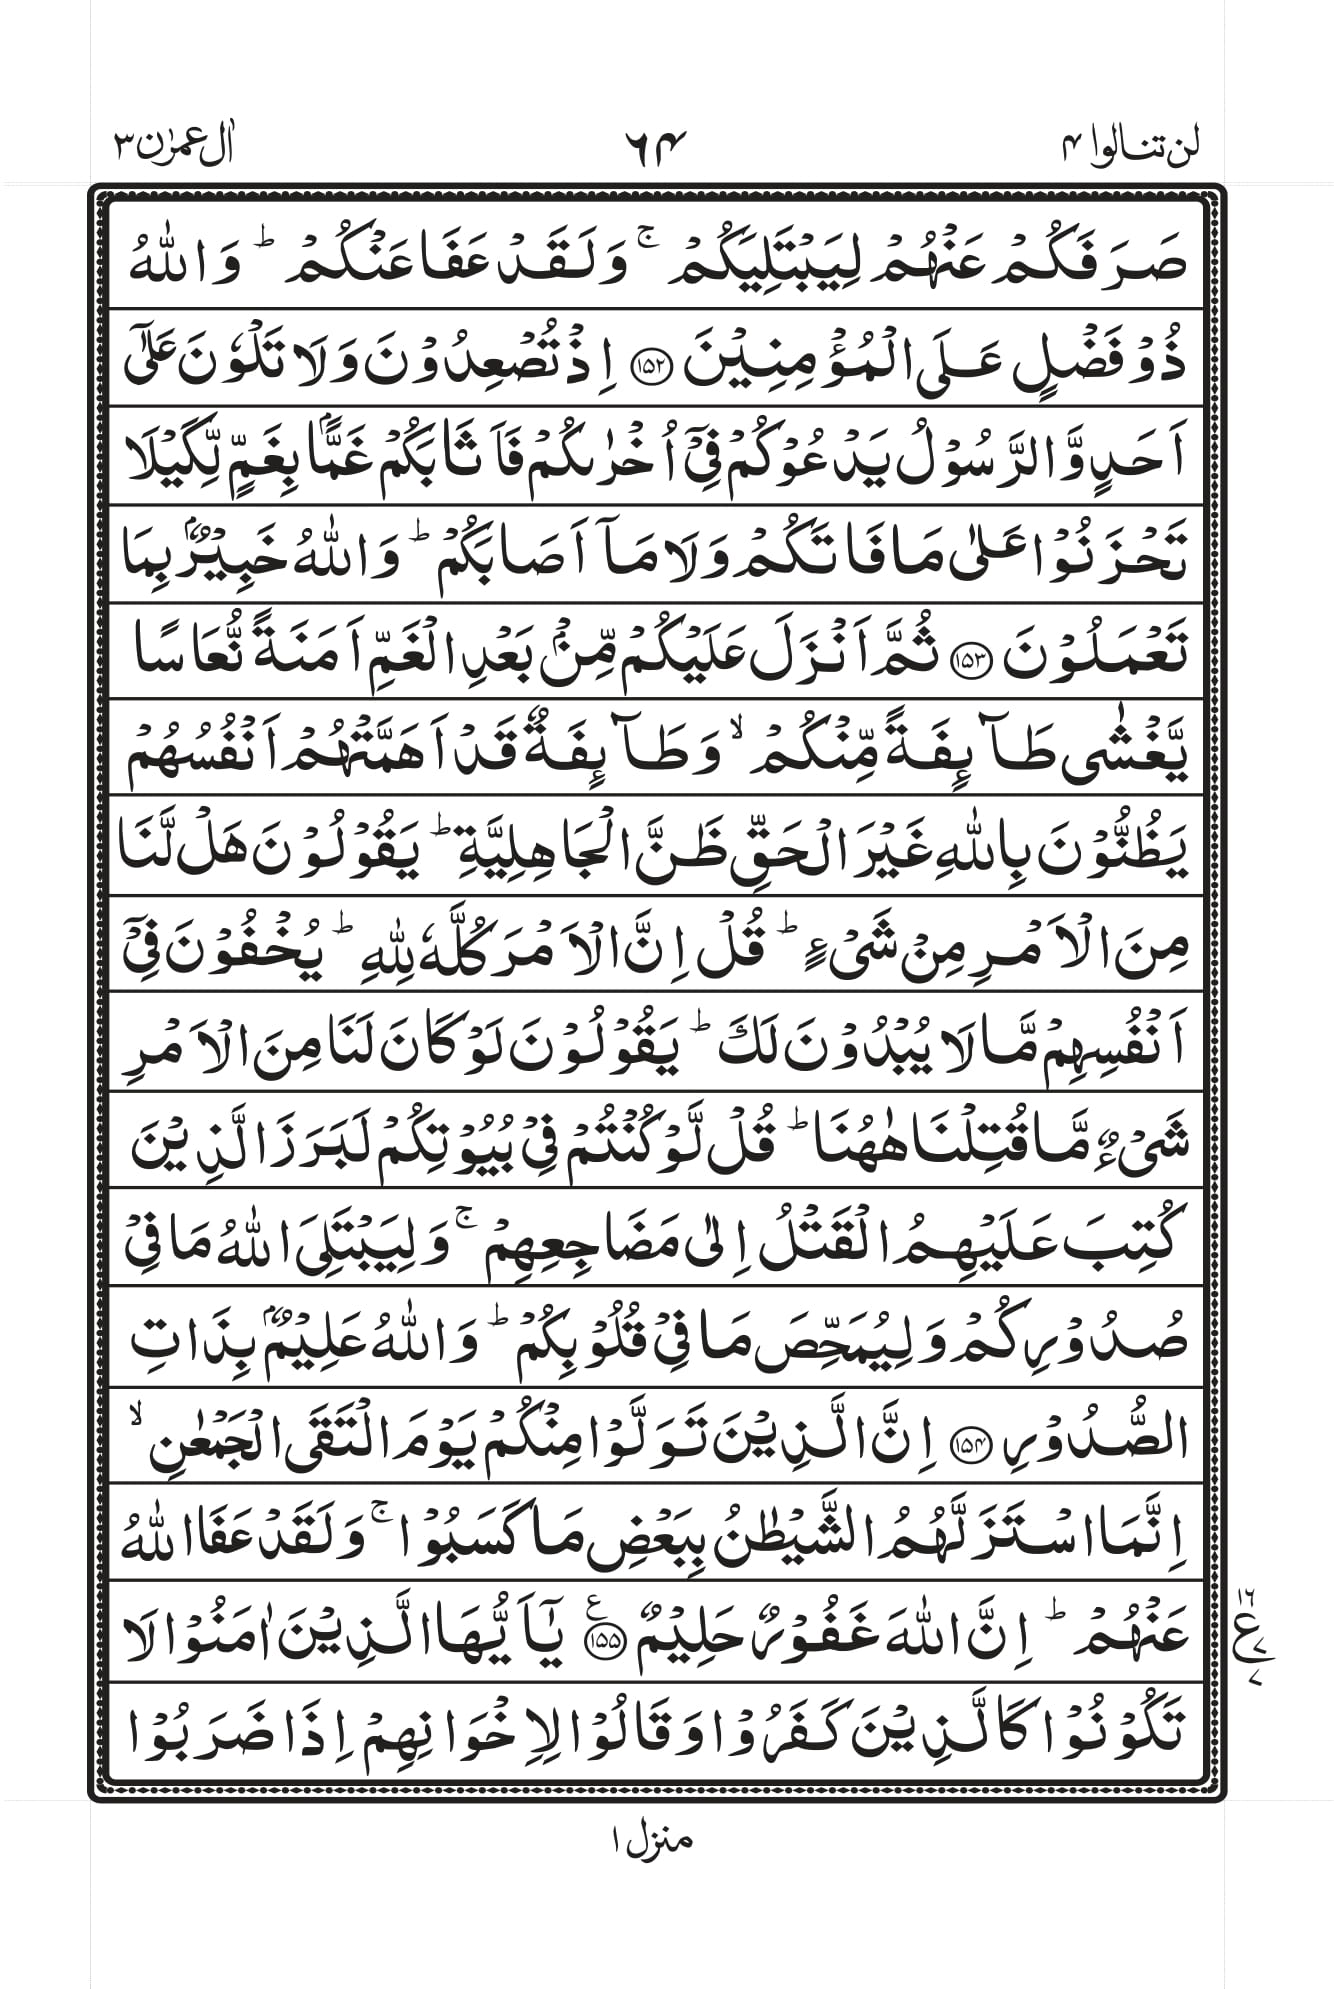 لن تنالوا ۴
۶۴
اٰل عمرٰن ۳
صَرَفَكُمْ عَنْهُمْ لِيَبْتَلِيَكُمْ ۚ وَلَقَدْ عَفَا عَنْكُمْ ؕ وَاللّٰهُ
ذُوْ فَضْلٍ عَلَى الْمُؤْمِنِيْنَ ﴿۱۵۲﴾ اِذْ تُصْعِدُوْنَ وَلَا تَلْوٗنَ عَلٰٓى
اَحَدٍ وَّالرَّسُوْلُ يَدْعُوْكُمْ فِيْۤ اُخْرٰىكُمْ فَاَثَابَكُمْ غَمًّۢا بِغَمٍّ لِّكَيْلَا
تَحْزَنُوْا عَلٰى مَا فَاتَكُمْ وَلَا مَاۤ اَصَابَكُمْ ؕ وَاللّٰهُ خَبِيْرٌۢ بِمَا
تَعْمَلُوْنَ ﴿۱۵۳﴾ ثُمَّ اَنْزَلَ عَلَيْكُمْ مِّنْۢ بَعْدِ الْغَمِّ اَمَنَةً نُّعَاسًا
يَّغْشٰى طَآىِٕفَةً مِّنْكُمْ ۙ وَطَآىِٕفَةٌ قَدْ اَهَمَّتْهُمْ اَنْفُسُهُمْ
يَظُنُّوْنَ بِاللّٰهِ غَيْرَ الْحَقِّ ظَنَّ الْجَاهِلِيَّةِ ؕ يَقُوْلُوْنَ هَلْ لَّنَا
مِنَ الْاَمْرِ مِنْ شَيْءٍ ؕ قُلْ اِنَّ الْاَمْرَ كُلَّهٗ لِلّٰهِ ؕ يُخْفُوْنَ فِيْۤ
اَنْفُسِهِمْ مَّا لَا يُبْدُوْنَ لَكَ ؕ يَقُوْلُوْنَ لَوْ كَانَ لَنَا مِنَ الْاَمْرِ
شَيْءٌ مَّا قُتِلْنَا هٰهُنَا ؕ قُلْ لَّوْ كُنْتُمْ فِيْ بُيُوْتِكُمْ لَبَرَزَ الَّذِيْنَ
كُتِبَ عَلَيْهِمُ الْقَتْلُ اِلٰى مَضَاجِعِهِمْ ۚ وَلِيَبْتَلِيَ اللّٰهُ مَا فِيْ
صُدُوْرِكُمْ وَلِيُمَحِّصَ مَا فِيْ قُلُوْبِكُمْ ؕ وَاللّٰهُ عَلِيْمٌۢ بِذَاتِ
الصُّدُوْرِ ﴿۱۵۴﴾ اِنَّ الَّذِيْنَ تَوَلَّوْا مِنْكُمْ يَوْمَ الْتَقَى الْجَمْعٰنِ ۙ
اِنَّمَا اسْتَزَلَّهُمُ الشَّيْطٰنُ بِبَعْضِ مَا كَسَبُوْا ۚ وَلَقَدْ عَفَا اللّٰهُ
عَنْهُمْ ؕ اِنَّ اللّٰهَ غَفُوْرٌ حَلِيْمٌ ﴿۱۵۵﴾ ع يٰۤاَيُّهَا الَّذِيْنَ اٰمَنُوْا لَا
۱۶ ع ۷ ۷
تَكُوْنُوْا كَالَّذِيْنَ كَفَرُوْا وَقَالُوْا لِاِخْوَانِهِمْ اِذَا ضَرَبُوْا
منزل ۱